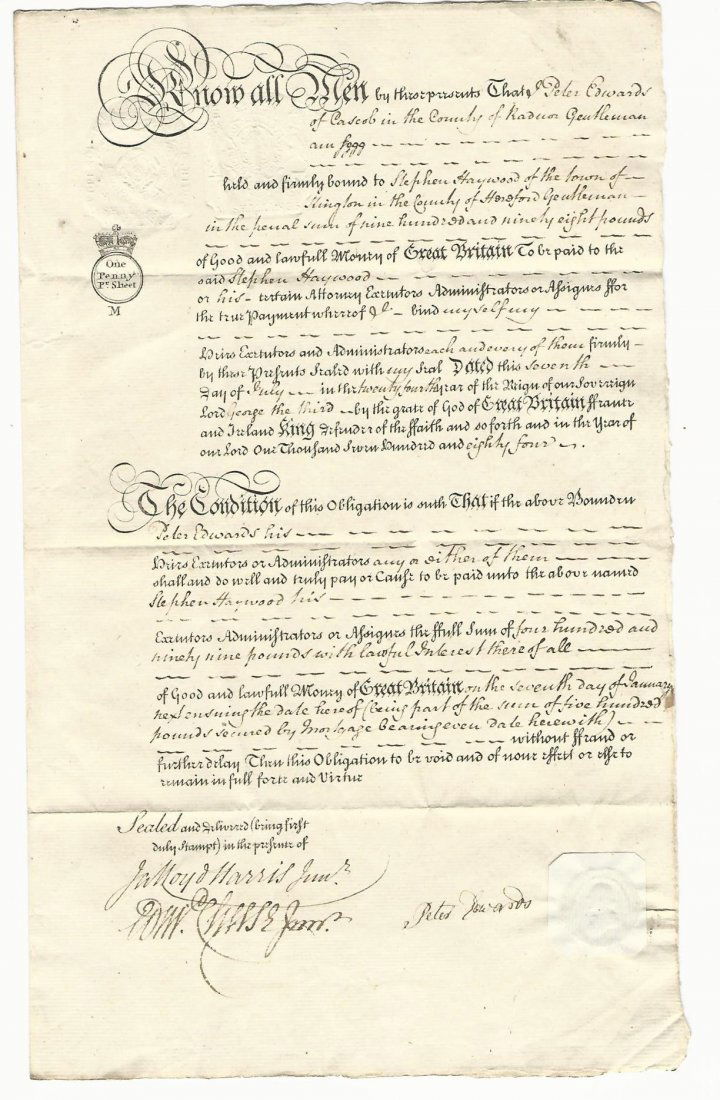 Know all Men by these presents That I Peter Edwards
of Cascob in the County of Radnor Gentleman
am
held and firmly bound to Stephen Haywood of the town of
Kington in the County of Hereford Gentleman
in the penal sum of nine hundred and ninety eight pounds
of Good and lawfull Money of Great Britain To be paid to the
said Stephen Haywood
or his certain Attorney Executors Administrators or Assignes ffor
the true Payment whereof I bind myself my
Heirs Executors and Administrators each and every of them firmly
by these Presents Sealed with my Seal Dated this seventh
Day of July in the twenty fourth year of the Reign of our Sovereign
Lord George the third by the grace of God of Great Britain ffrance
and Ireland King defender of the ffaith and so forth and in the Year of
our Lord One Thousand Seven Hundred and eighty four
One
Penny
Pr. Sheet
M
The Condition of this Obligation is such That if the above Bounden
Peter Edwards his
Heirs Executors or Administrators any or either of them
shall and do well and truly pay or Cause to be paid unto the above named
Stephen Haywood his
Executors Administrators or Assignes the ffull Sum of four hundred and
ninety nine pounds with lawful Interest thereof all
of Good and lawfull Money of Great Britain on the seventh day of January
next ensuing the date hereof (being part of the sum of five hundred
pounds secured by Mortgage bearing even Date herewith)
without ffraud or
further delay Then this Obligation to be void and of none effect or else to
remain in full force and Virtue
Sealed and delivered (being first
duly Stampt) in the presence of
Ja Lloyd Harris Junr.
Edwd. Cheese Junr.
Peter Edwards